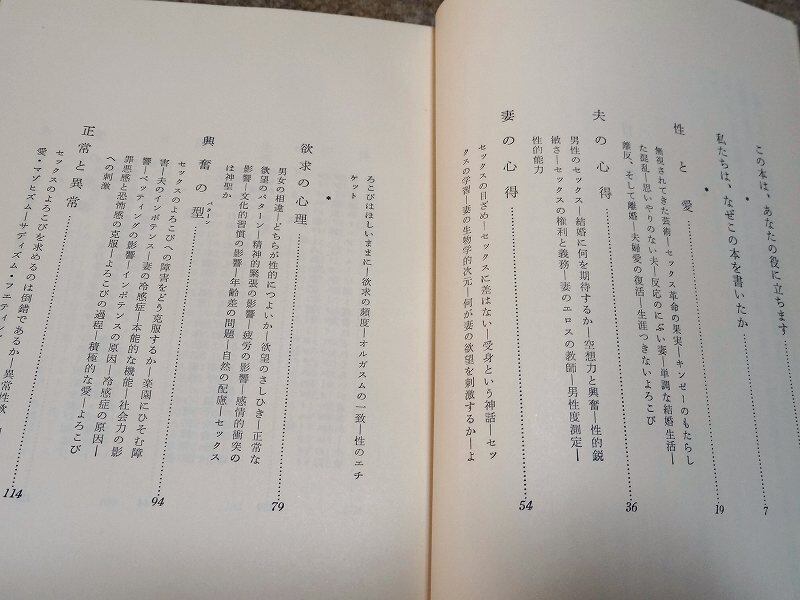 この本は、あなたの役に立ちます……7
私たちは、なぜこの本を書いたか……19
●
性と愛……36
無視されてきた芸術―セックス革命の果実―キンゼーのもたらし
た混乱―思いやりのない夫―反応のにぶい妻―単調な結婚生活―
離反、そして離婚―夫婦愛の復活―生涯つきないよろこび
夫の心得……
男性のセックス―結婚に何を期待するか―空想力と興奮―性的鋭
敏さ―セックスの権利と義務―妻のエロスの教師―男性度測定―
性的能力
妻の心得……54
セックスの目ざめ―セックスに差はない―受身という神話―セッ
クスの学習―妻の生物学的次元―何が妻の欲望を刺激するか―よ
ろこびはほしいままに―欲求の頻度―オルガスムの一致―性のエチ
ケット
●
欲求の心理……79
男女の相違―どちらが性的につよいか―欲望のさしひき―正常な
欲望のパターン―精神的緊張の影響―疲労の影響―感情的衝突の
影響―文化的習慣の影響―年齢差の問題―自然の配慮―セックス
は神聖か
興奮の型パターン……94
セックスのよろこびへの障害をどう克服するか―楽園にひそむ障
害―夫のインポテンス―妻の冷感症―本能的な機能―社会力の影
響―ペッティングの影響―インポテンスの原因―冷感症の原因―
罪悪感と恐怖感の克服―よろこびの過程―積極的な愛―よろこび
への刺激
正常と異常……114
セックスのよろこびを求めるのは倒錯であるか―異常性欲
愛・マゾヒズム―サディズム・フェティシ